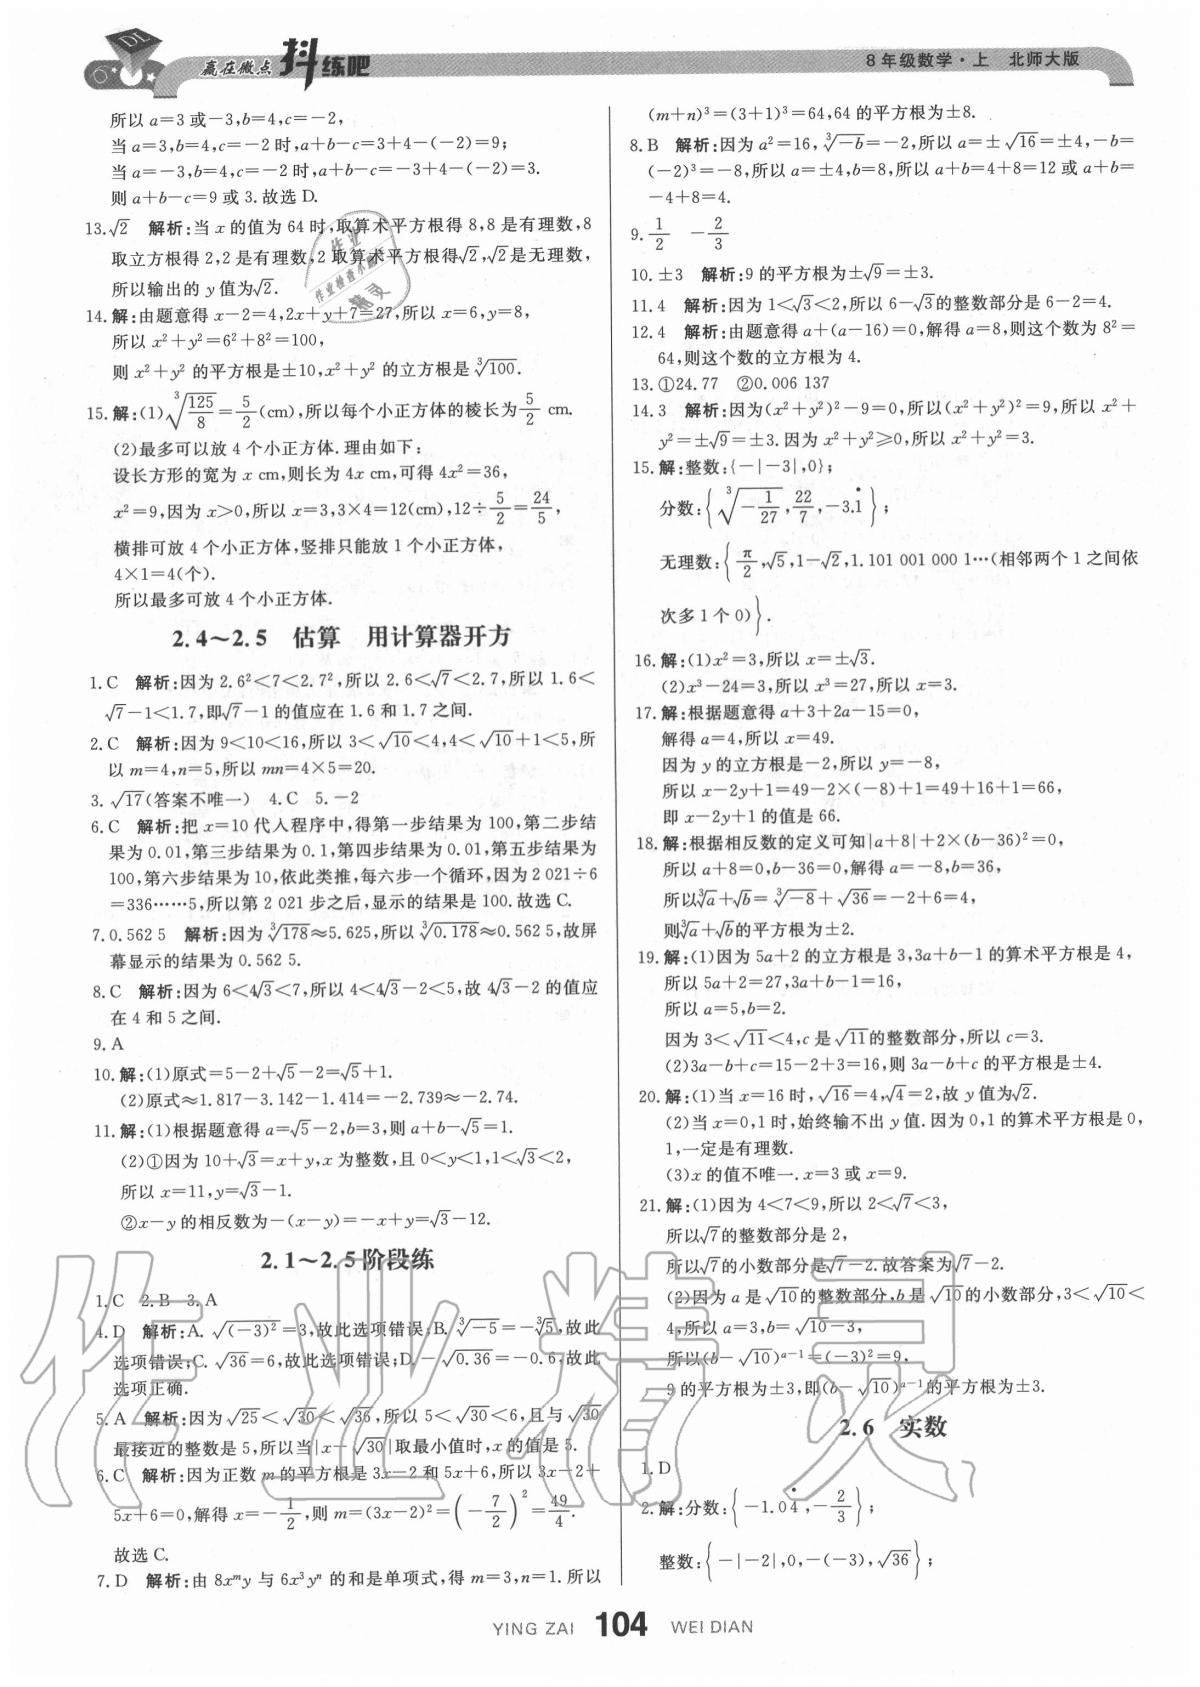 DL
赢在微点 抖练吧
8年级数学·上 北师大版
所以a=3或-3,b=4,c=-2,
当a=3,b=4,c=-2时,a+b-c=3+4-(-2)=9;
当a=-3,b=4,c=-2时,a+b-c=-3+4-(-2)=3.
则a+b-c=9或3.故选D.
13.√2 解析:当x的值为64时,取算术平方根得8,8是有理数,8
取立方根得2,2是有理数,2取算术平方根得√2,√2是无理数,
所以输出的y值为√2.
14.解:由题意得x-2=4,2x+y+7=27,所以x=6,y=8,
所以x²+y²=6²+8²=100,
则x²+y²的平方根是±10,x²+y²的立方根是∛100.
15.解:(1)∛(125/8)=5/2(cm),所以每个小正方体的棱长为5/2 cm.
(2)最多可以放4个小正方体.理由如下:
设长方形的宽为x cm,则长为4x cm,可得4x²=36,
x²=9,因为x>0,所以x=3,3×4=12(cm),12÷5/2=24/5,
横排可放4个小正方体,竖排只能放1个小正方体,
4×1=4(个).
所以最多可放4个小正方体.
2.4~2.5 估算 用计算器开方
1.C 解析:因为2.6²<7<2.7²,所以2.6<√7<2.7,所以1.6<
√7-1<1.7,即√7-1的值应在1.6和1.7之间.
2.C 解析:因为9<10<16,所以3<√10<4,4<√10+1<5,所
以m=4,n=5,所以mn=4×5=20.
3.√17(答案不唯一) 4.C 5.-2
6.C 解析:把x=10代入程序中,得第一步结果为100,第二步结
果为0.01,第三步结果为0.1,第四步结果为0.01,第五步结果为
100,第六步结果为10,依此类推,每六步一个循环,因为2 021÷6
=336……5,所以第2 021步之后,显示的结果是100.故选C.
7.0.562 5 解析:因为∛178≈5.625,所以∛0.178≈0.562 5,故屏
幕显示的结果为0.562 5.
8.C 解析:因为6<4√3<7,所以4<4√3-2<5,故4√3-2的值应
在4和5之间.
9.A
10.解:(1)原式=5-2+√5-2=√5+1.
(2)原式≈1.817-3.142-1.414=-2.739≈-2.74.
11.解:(1)根据题意得a=√5-2,b=3,则a+b-√5=1.
(2)①因为10+√3=x+y,x为整数,且0<y<1,1<√3<2,
所以x=11,y=√3-1.
②x-y的相反数为-(x-y)=-x+y=√3-12.
2.1~2.5阶段练
1.C 2.B 3.A
4.D 解析:A.√(-3)²=3,故此选项错误;B.∛-5=-∛5,故此
选项错误;C.√36=6,故此选项错误;D.-√0.36=-0.6,故此
选项正确.
5.A 解析:因为√25<√30<√36,所以5<√30<6,且与√30
最接近的整数是5,所以当|x-√30|取最小值时,x的值是5.
6.C 解析:因为正数m的平方根是3x-2和5x+6,所以3x-2+
5x+6=0,解得x=-1/2,则m=(3x-2)²=(-7/2)²=49/4.
故选C.
7.D 解析:由8xᵐy与6x³yⁿ的和是单项式,得m=3,n=1.所以
(m+n)³=(3+1)³=64,64的平方根为±8.
8.B 解析:因为a²=16,∛-b=-2,所以a=±√16=±4,-b=
(-2)³=-8,所以a=±4,b=8,所以a+b=4+8=12或a+b=
-4+8=4.
9.1/2 -2/3
10.±3 解析:9的平方根为±√9=±3.
11.4 解析:因为1<√3<2,所以6-√3的整数部分是6-2=4.
12.4 解析:由题意得a+(a-16)=0,解得a=8,则这个数为8²=
64,则这个数的立方根为4.
13.①24.77 ②0.006 137
14.3 解析:因为(x²+y²)²-9=0,所以(x²+y²)²=9,所以x²+
y²=±√9=±3.因为x²+y²≥0,所以x²+y²=3.
15.解:整数:{-|-3|,0};
分数:{∛(-1/27),22/7,-3.1̇};
无理数:{π/2,√5,1-√2,1.101 001 000 1…(相邻两个1之间依
次多1个0)}.
16.解:(1)x²=3,所以x=±√3.
(2)x³-24=3,所以x³=27,所以x=3.
17.解:根据题意得a+3+2a-15=0,
解得a=4,所以x=49.
因为y的立方根是-2,所以y=-8,
所以x-2y+1=49-2×(-8)+1=49+16+1=66,
即x-2y+1的值是66.
18.解:根据相反数的定义可知|a+8|+2×(b-36)²=0,
所以a+8=0,b-36=0,解得a=-8,b=36,
所以∛a+√b=∛-8+√36=-2+6=4,
则∛a+√b的平方根为±2.
19.解:(1)因为5a+2的立方根是3,3a+b-1的算术平方根是4,
所以5a+2=27,3a+b-1=16,
所以a=5,b=2.
因为3<√11<4,c是√11的整数部分,所以c=3.
(2)3a-b+c=15-2+3=16,则3a-b+c的平方根是±4.
20.解:(1)当x=16时,√16=4,√4=2,故y值为√2.
(2)当x=0,1时,始终输不出y值.因为0,1的算术平方根是0,
1,一定是有理数.
(3)x的值不唯一.x=3或x=9.
21.解:(1)因为4<7<9,所以2<√7<3,
所以√7的整数部分是2,
所以√7的小数部分是√7-2.故答案为√7-2.
(2)因为a是√10的整数部分,b是√10的小数部分,3<√10<
4,所以a=3,b=√10-3,
所以(b-√10)ᵃ⁻¹=(-3)²=9,
9的平方根为±3,即(b-√10)ᵃ⁻¹的平方根为±3.
2.6 实数
1.D
2.解:分数:{-1.04̇,-2/3};
整数:{-|-2|,0,-(-3),√36};
YING ZAI 104 WEI DIAN
作业
作业检查小助手
精灵
作业精灵